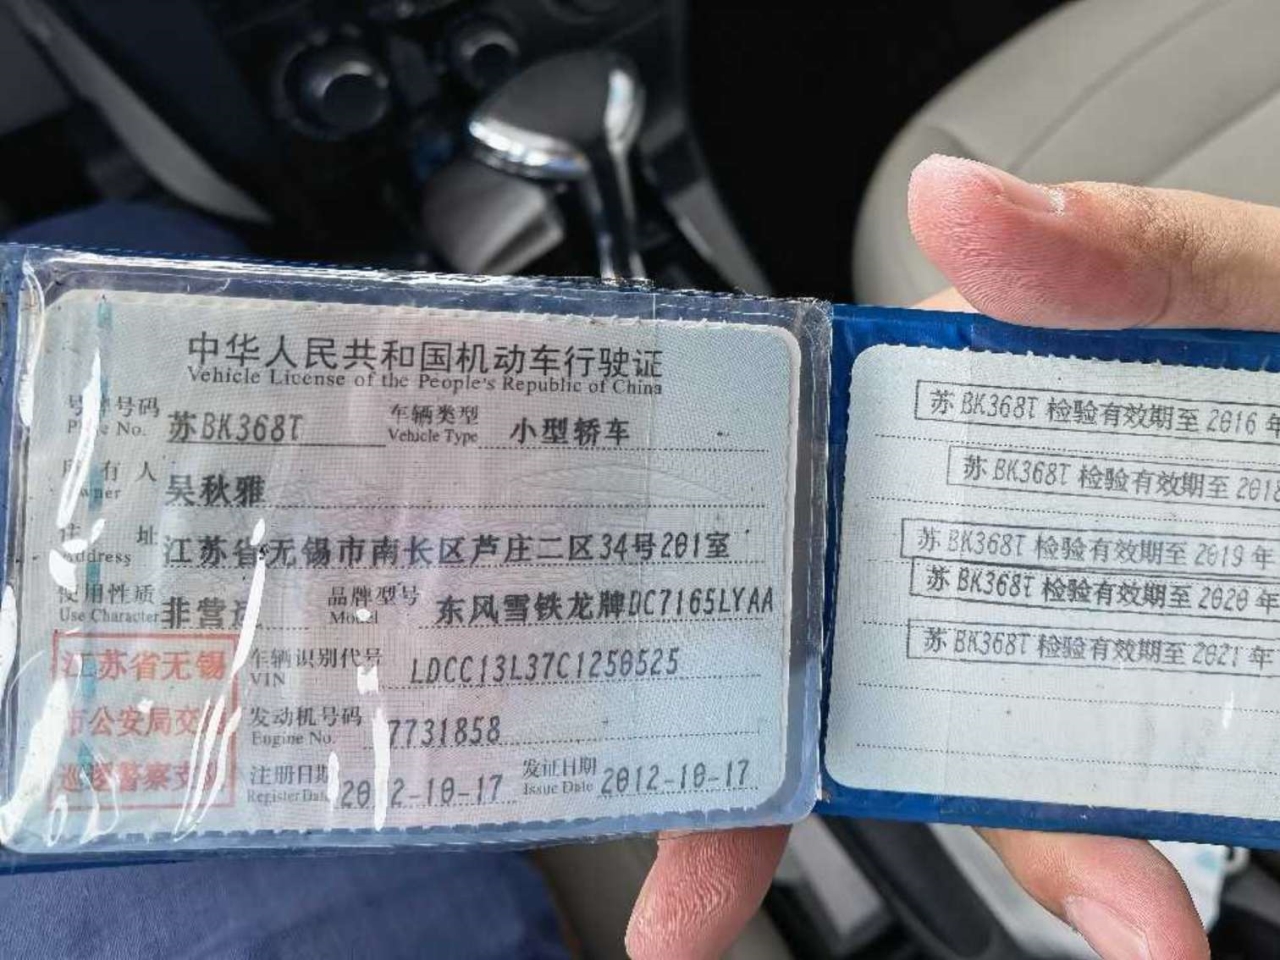 中华人民共和国机动车行驶证
Vehicle License of the People's Republic of China
号牌号码 苏BK368T 车辆类型 小型轿车
Plate No. Vehicle Type
所有人 吴秋雅
Owner
住址 江苏省无锡市南长区芦庄二区34号201室
Address
使用性质 非营运 品牌型号 东风雪铁龙牌DC7165LYAA
Use Character Model
江苏省无锡
市公安局交
巡逻警察支
车辆识别代号 LDCC13L37C1250525
VIN
发动机号码 7731858
Engine No.
注册日期 2012-10-17 发证日期 2012-10-17
Register Date Issue Date
苏BK368T 检验有效期至 2016 年
苏BK368T 检验有效期至 2018
苏BK368T 检验有效期至 2019 年
苏BK368T 检验有效期至 2020 年
苏BK368T 检验有效期至 2021 年